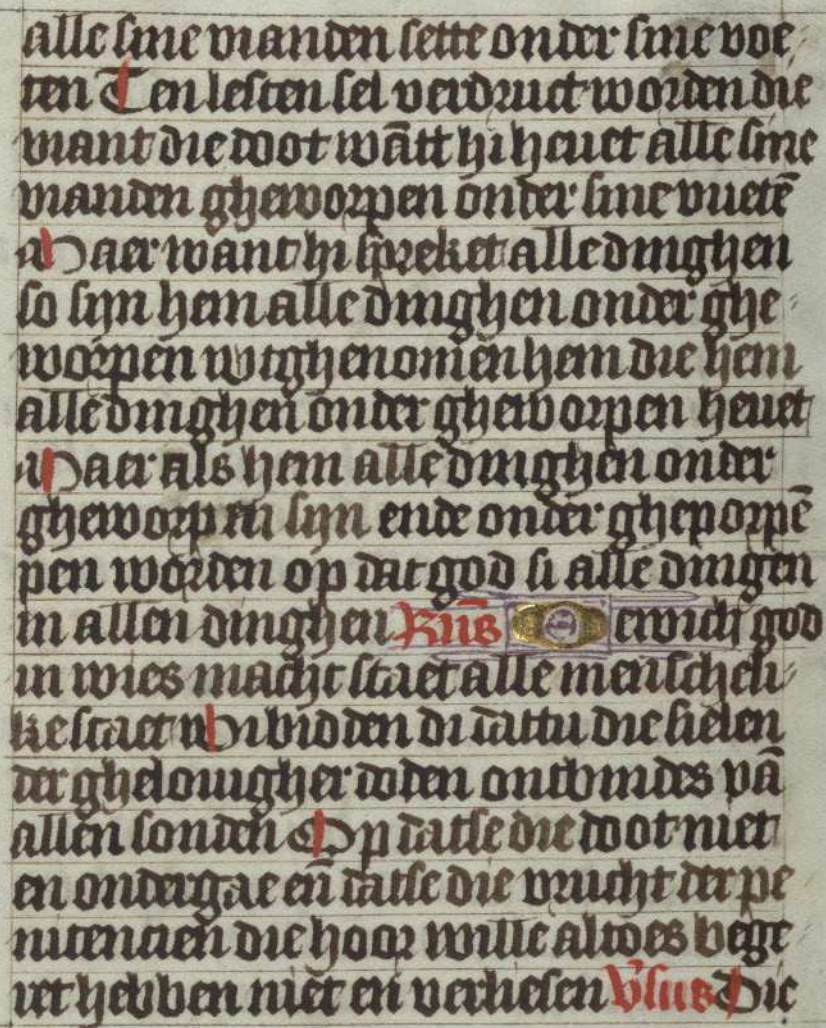 alle sine vianden sette onder sine voe
ten Ten lesten sel verdruct worden die
viant die doot wātt hi hevet alle sine
vianden gheworpen onder sine vuetē
Maer want hi spreket alle dinghen
so sijn hem alle dinghen onder ghe
worpen wtghenomen hem die hem
alle dinghen onder gheworpen hevet
Maer als hem alle dinghen onder
gheworpen sijn ende onder gheporpē
pen worden op dat god si alle dingen
in allen dinghen Ewich god
in wies macht staet alle menscheli
ke staet Wi bidden di dattu die sielen
der ghelovigher doden ontbindes vā
allen sonden Op datse die doot niet
en ondergae eñ datse die vrucht der pe
nitencien die hoor wille altoes bege
ret hebben niet en verliesen v̄sus Die